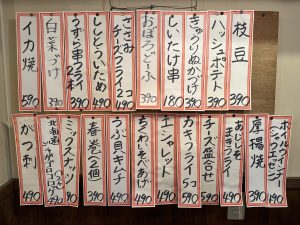 枝豆
390
ハッシュポテト
390
きゅうりぬかづけ
390
しいたけ串
180
おぼろどーふ
390
ささみチーズフライ2コ
490
ししとういため
490
うずら串フライ2本
390
白菜づけ
390
イカ焼
590
ボイルウインナー
490
厚揚焼
390
あおじそ
490
チーズ盛合せ
490
カキフライ5コ
エシャレット
490
ちくわいそべあげ
490
うぶ貝キムチ
490
春巻(2個)
390
ミックスナッツ
390
北海道
490
がつ刺
490